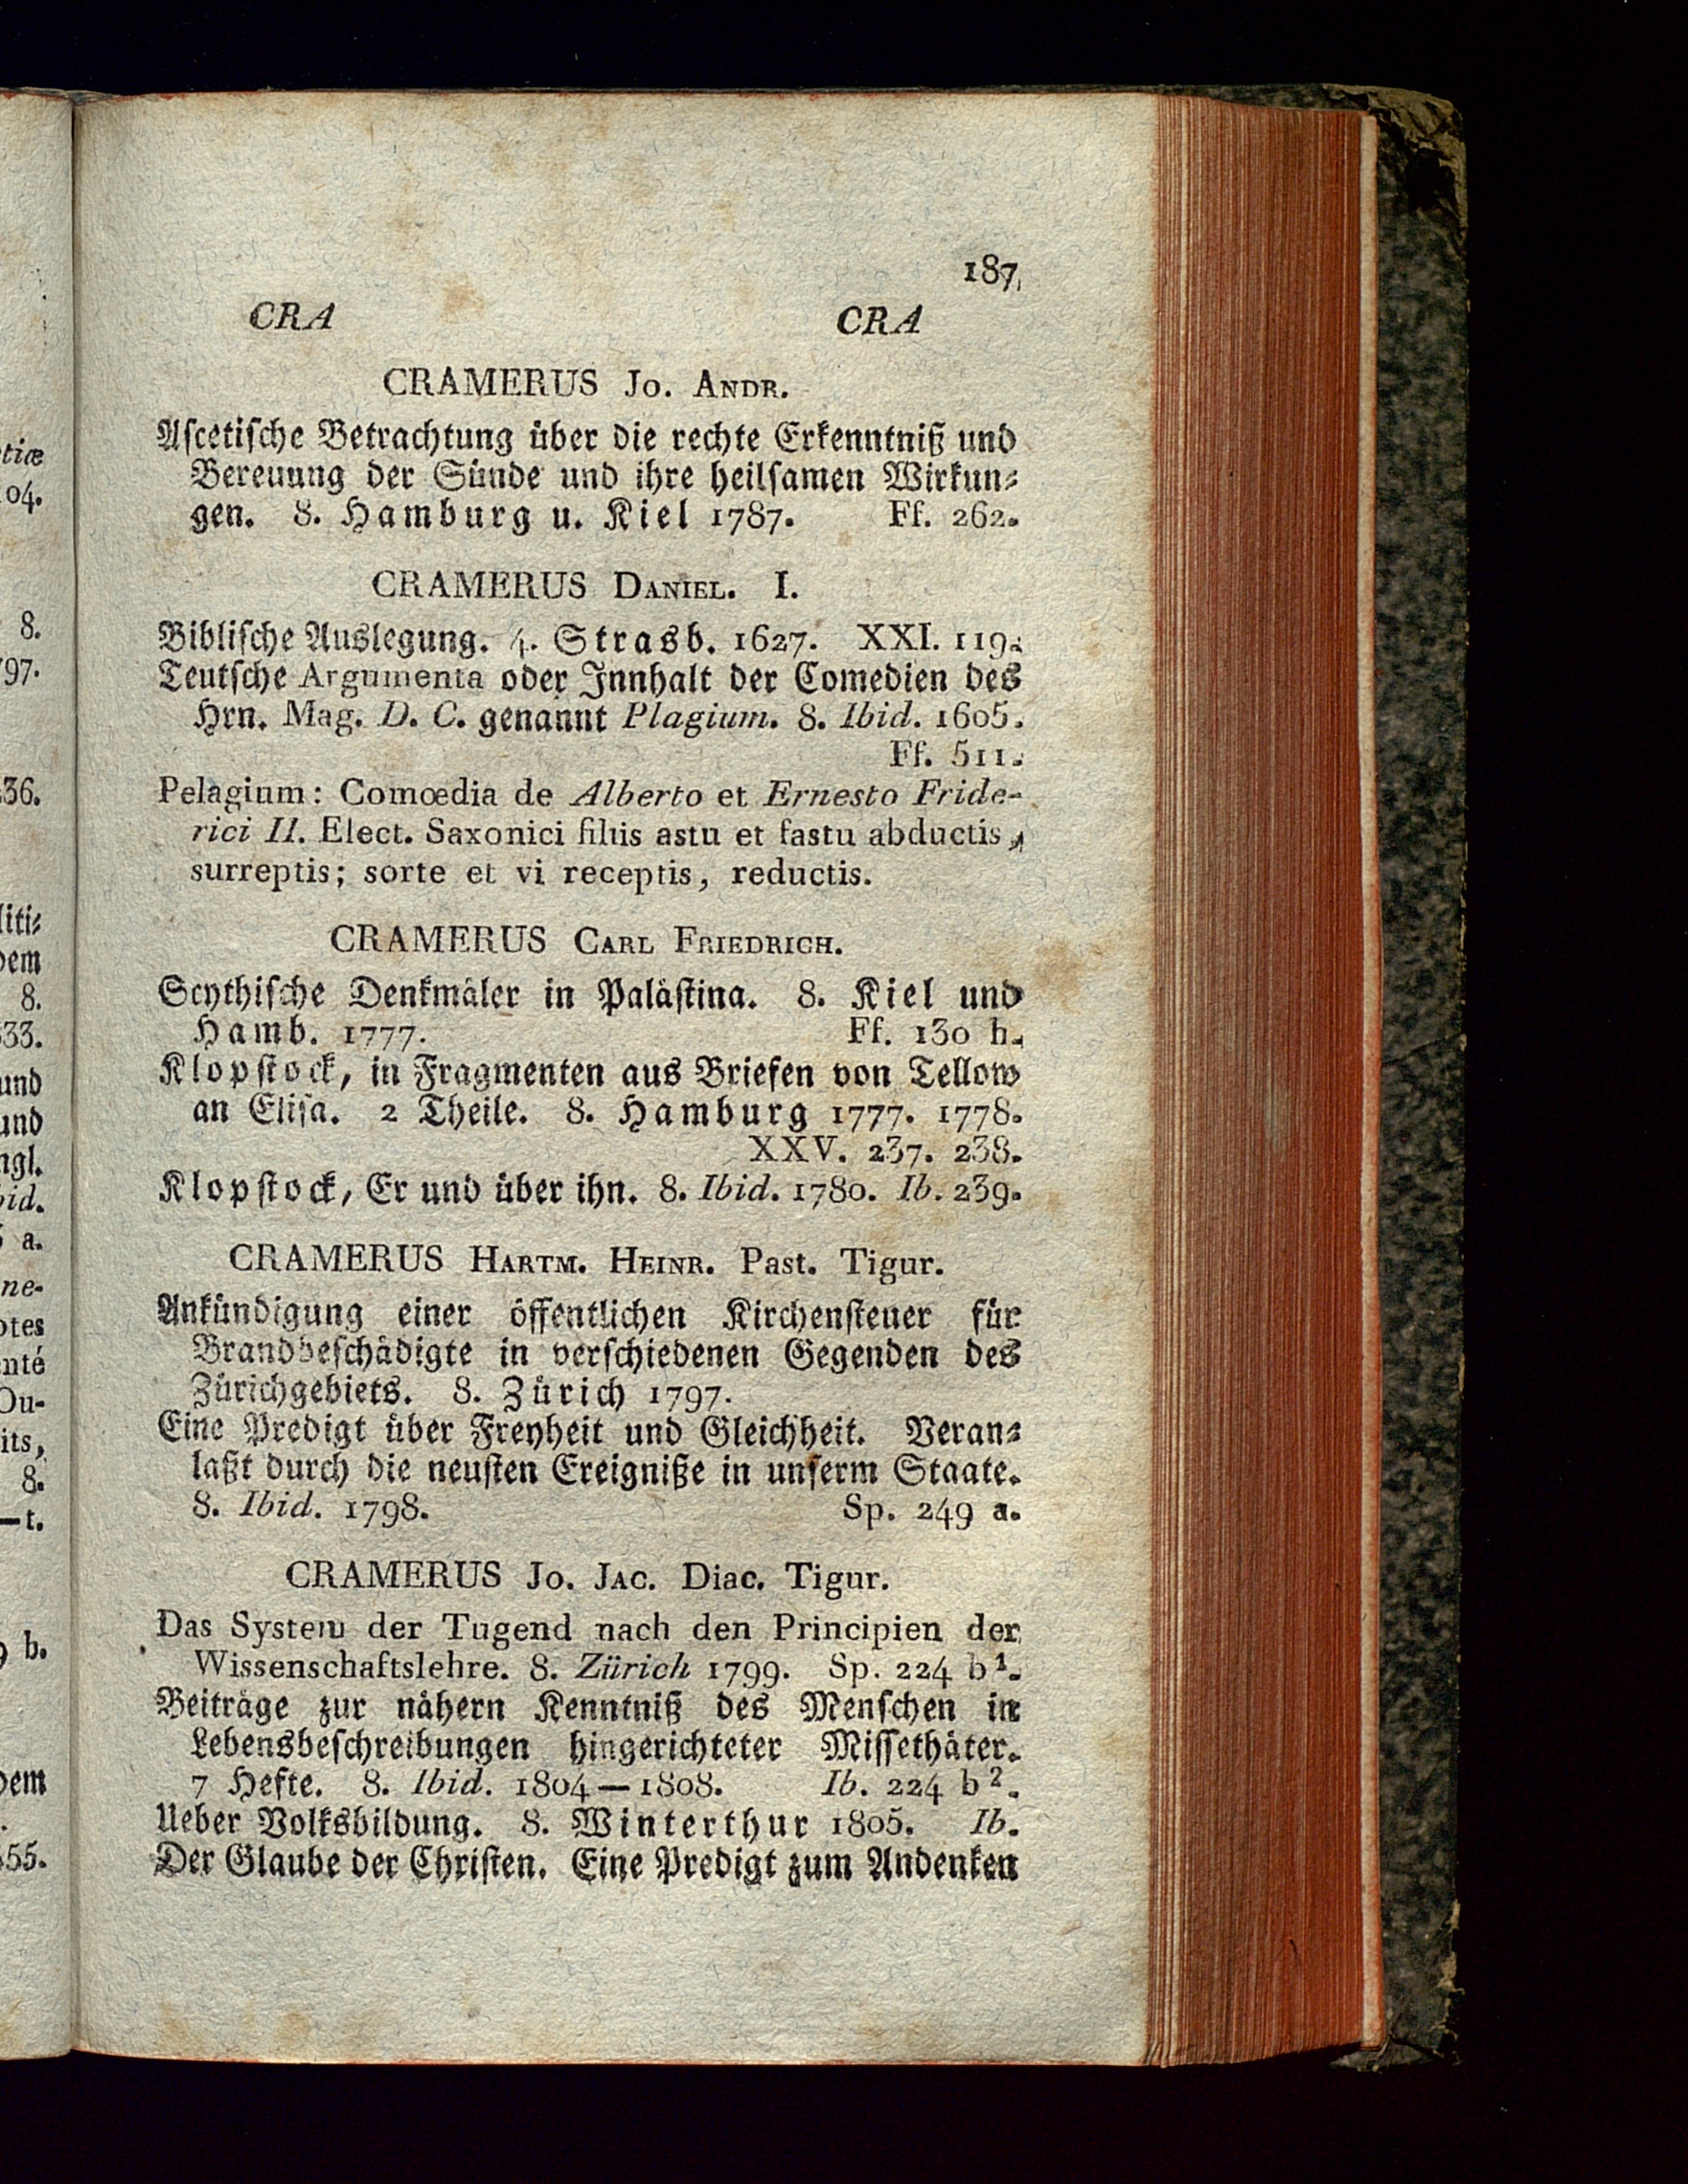 187
CRA CRA
CRAMERUS Jo. Andr.
Ascetische Betrachtung über die rechte Erkenntniß und
Bereuung der Sünde und ihre heilsamen Wirkun-
gen. 8. Hamburg u. Kiel 1787. Ff. 262.
CRAMERUS Daniel. I.
Biblische Auslegung. 4. Strasb. 1627. XXI. 119.
Teutsche Argumenta oder Innhalt der Comedien des
Hrn. Mag. D. C. genannt Plagium. 8. Ibid. 1605.
Ff. 511.
Pelagium: Comœdia de Alberto et Ernesto Fride-
rici II. Elect. Saxonici filiis astu et fastu abductis,
surreptis; sorte et vi receptis, reductis.
CRAMERUS Carl Friedrich.
Scythische Denkmäler in Palästina. 8. Kiel und
Hamb. 1777. Ff. 130 h.
Klopstock, in Fragmenten aus Briefen von Tellow
an Elisa. 2 Theile. 8. Hamburg 1777. 1778.
XXV. 237. 238.
Klopstock, Er und über ihn. 8. Ibid. 1780. Ib. 239.
CRAMERUS Hartm. Heinr. Past. Tigur.
Ankündigung einer öffentlichen Kirchensteuer für
Brandbeschädigte in verschiedenen Gegenden des
Zürichgebiets. 8. Zürich 1797.
Eine Predigt über Freyheit und Gleichheit. Veran-
laßt durch die neusten Ereigniße in unserm Staate.
8. Ibid. 1798. Sp. 249 a.
CRAMERUS Jo. Jac. Diac. Tigur.
Das System der Tugend nach den Principien der
Wissenschaftslehre. 8. Zürich 1799. Sp. 224 b¹.
Beiträge zur nähern Kenntniß des Menschen in
Lebensbeschreibungen hingerichteter Missethäter.
7 Hefte. 8. Ibid. 1804—1808. Ib. 224 b².
Ueber Volksbildung. 8. Winterthur 1805. Ib.
Der Glaube der Christen. Eine Predigt zum Andenken